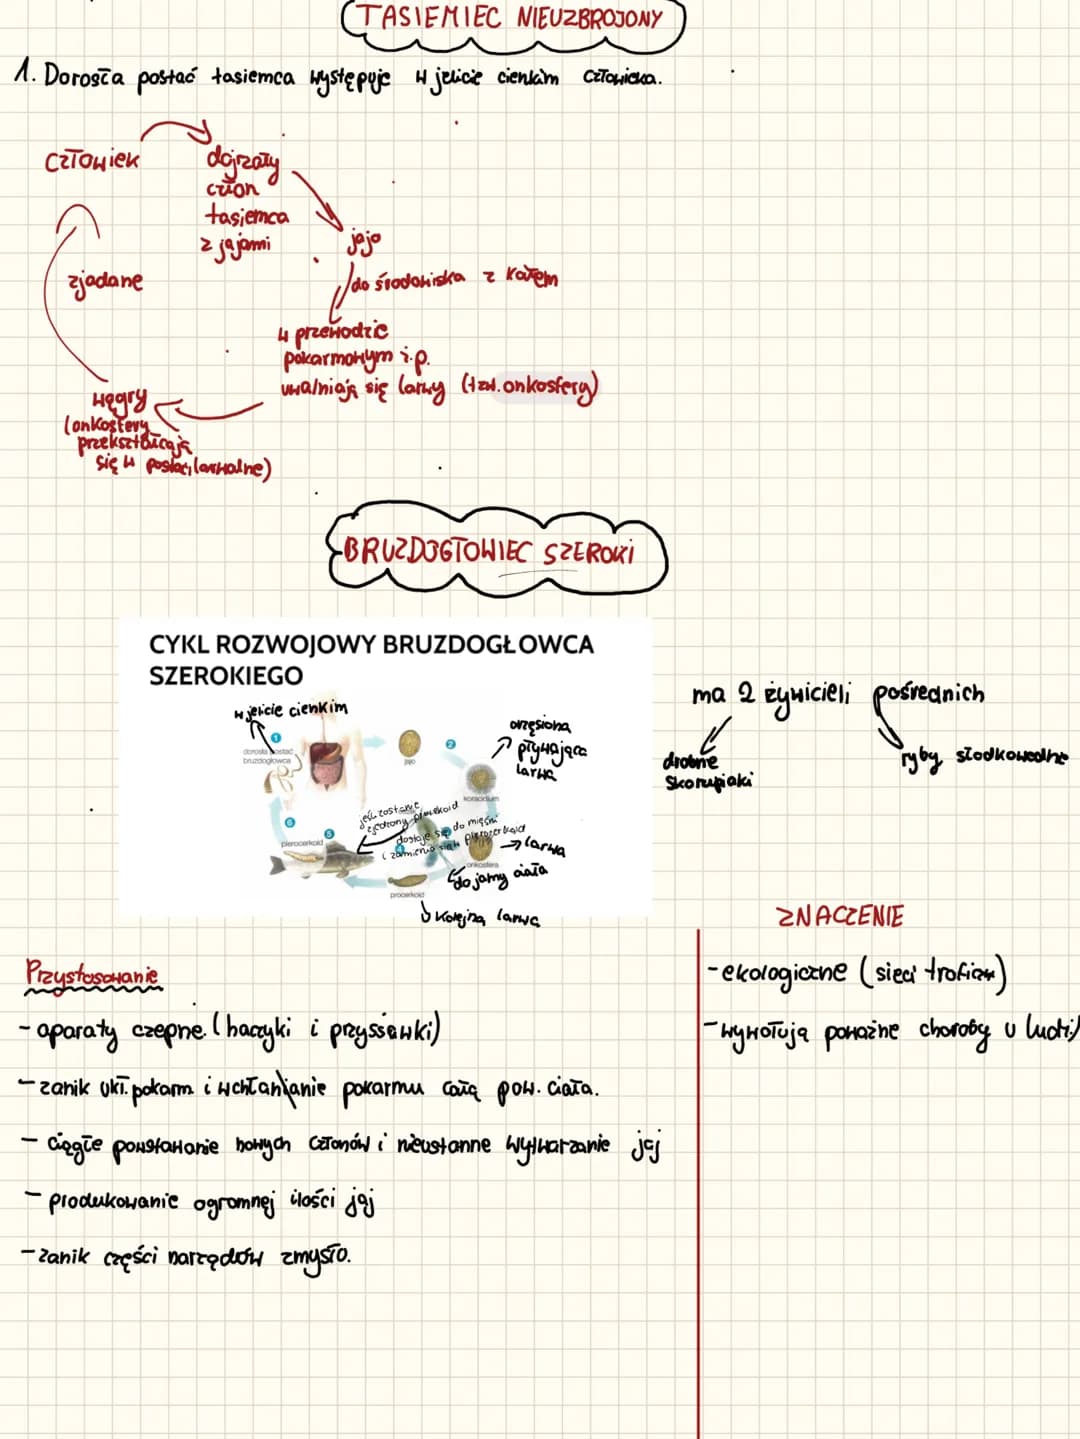 TASIEMIEC NIEUZBROJONY
1. Dorosła postać tasiemca występuje w jelicie cienkim człowieka.
człowiek
dojrzały
człon
tasiemca
z jajami
jajo
zjadane
do środowiska z kałem
w przewodzie
pokarmowym ż.p.
uwalniają się larwy (tzw. onkosfery)
węgry
(onkosfery
przekształcają
się w postaci larwalne)
BRUZDOGŁOWIEC SZEROKI
CYKL ROZWOJOWY BRUZDOGŁOWCA
SZEROKIEGO
w jelicie cienkim
1
dorosła postać
bruzdogłowca
jajo
2
orzęsiona
pływająca
larwa
koracidium
ma 2 żywicieli pośrednich
drobne
skorupiaki
ryby słodkowodne
jeśli zostanie
zjedzony
dostaje się do mięśni
i zamienia się w plerocerkoid
6
5
plerocerkoid
4
larwa
onkosfera
do jamy ciała
procerkoid
kolejna larwa
Przystosowanie
- aparaty czepne. (haczyki i przyssawki)
- zanik ukł. pokarm i wchłanianie pokarmu całą pow. ciała.
- ciągłe powstawanie nowych członów i nieustanne wytwarzanie jaj
- produkowanie ogromnej ilości jaj
- zanik części narządów zmysło.
ZNACZENIE
- ekologiczne (sieci trofizn)
- wywołują poważne choroby u ludzi)